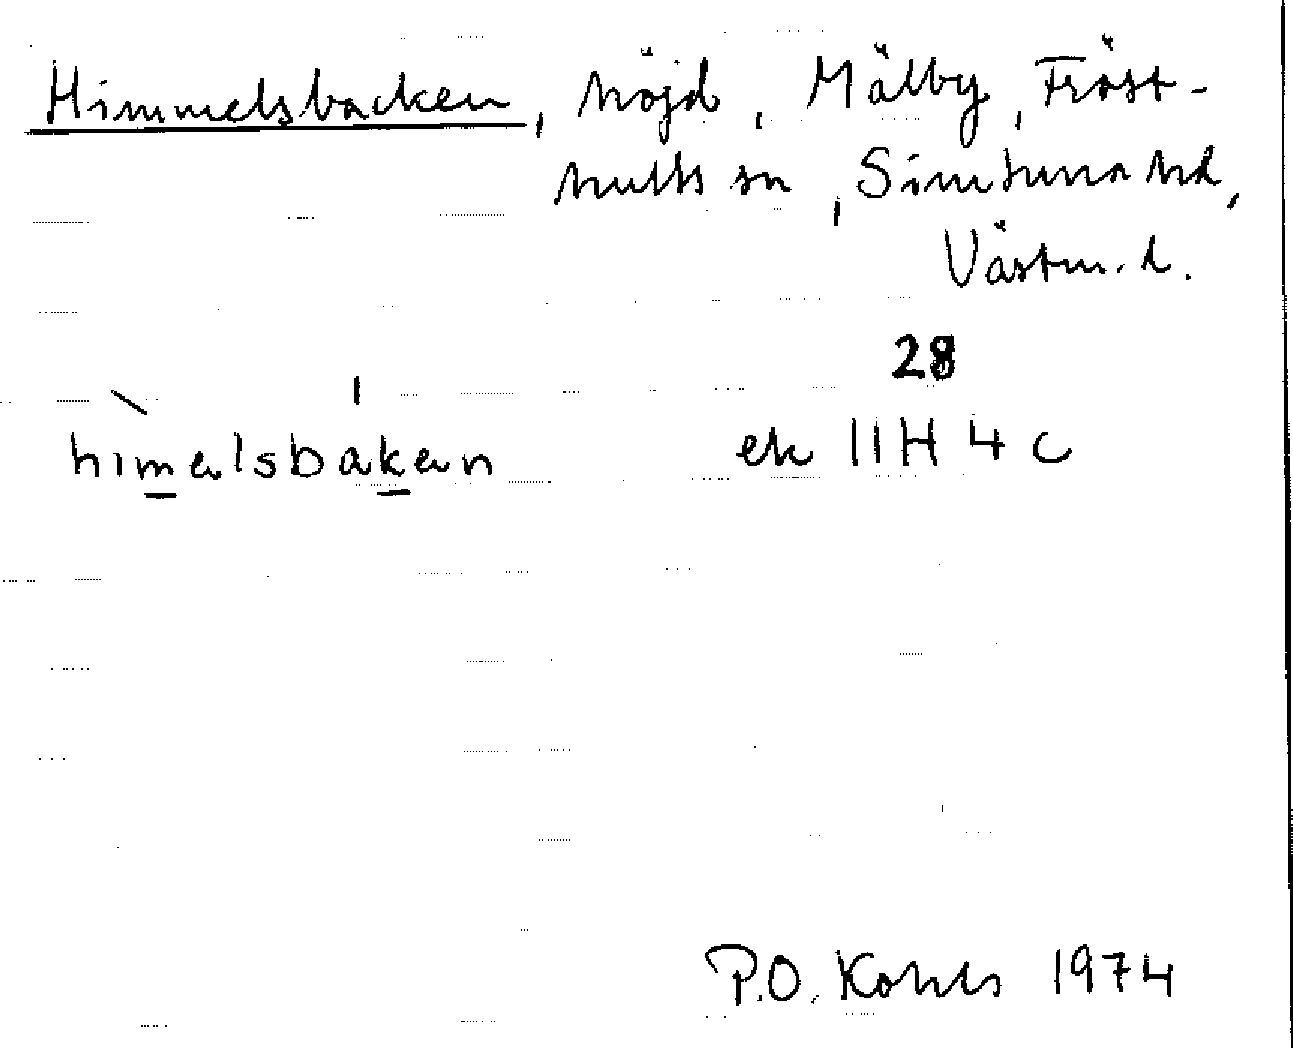 Himmelsbacken, höjd, Mälby, Fröst-
hults sn, Simtuna hd,
Västm. l.
28
himalsbakan ek 11H 4c
P.O. Kohls 1974